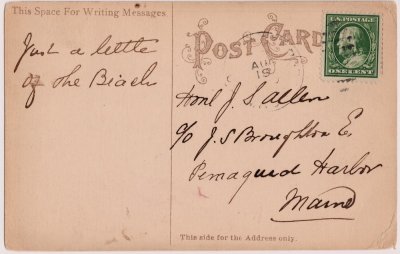 This Space For Writing Messages
POST CARD
U.S. POSTAGE
ONE CENT
AUG
19
Just a little
of the Beach
J. S. Allen
c/o J. S Broughton E.
Pemaquid Harbor
Maine
This side for the Address only.